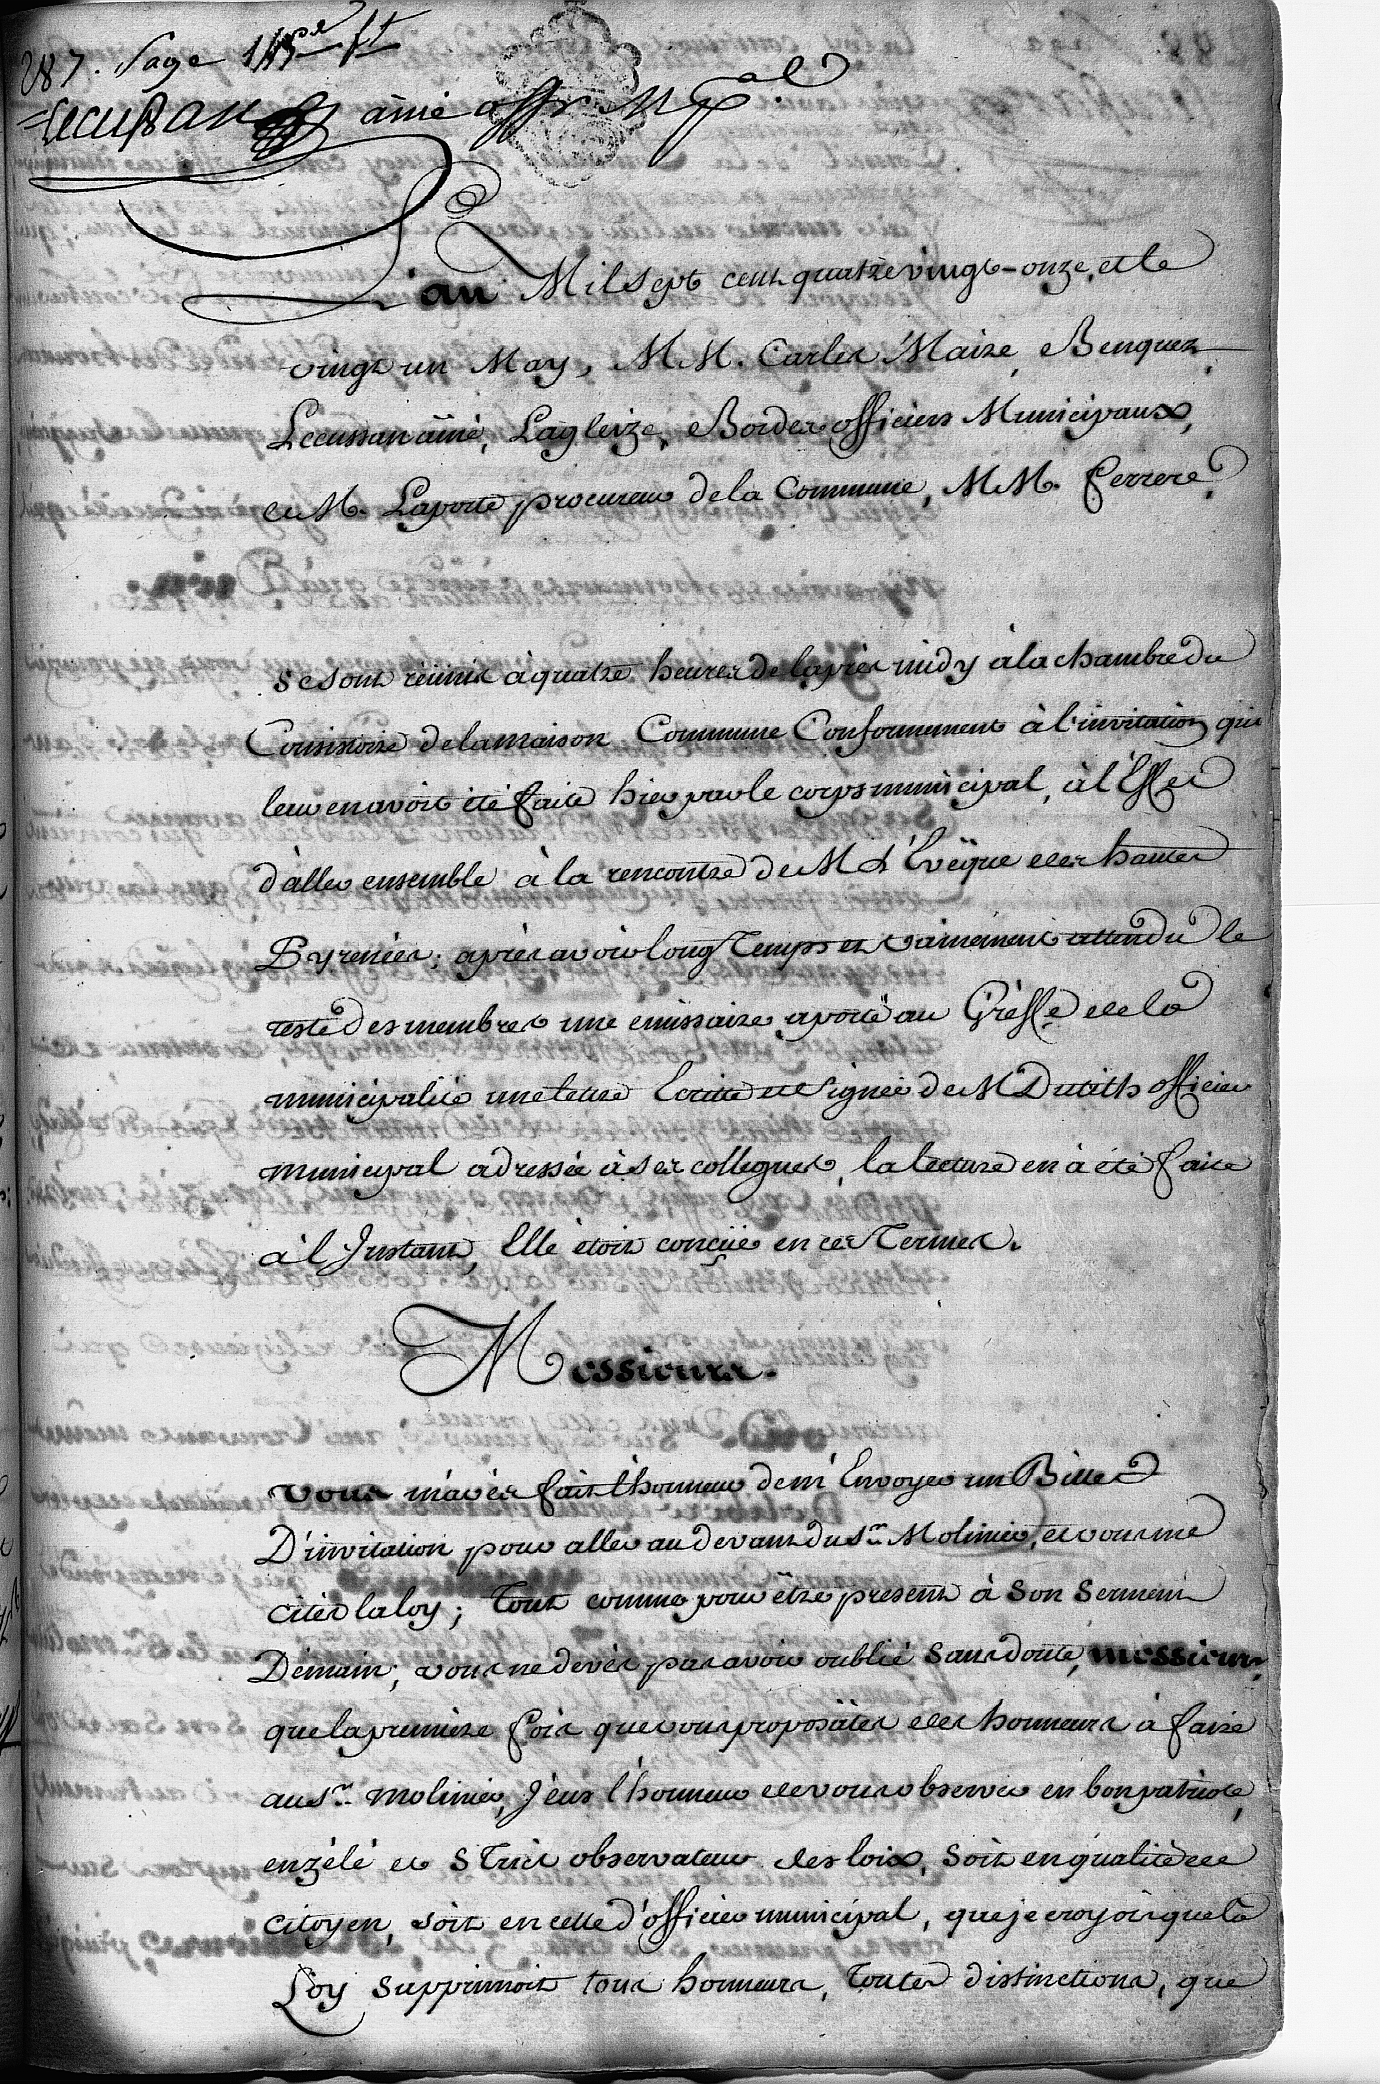 287. Page
Lecussan ainé offr. mpal
L'an Mil sept cent quatre vingt-onze, et le
vingt un May, MM. Carles Maire, Benquez,
Lecussan ainé, Lagleize, Borderes officiers Municipaux,
et M. Laporte procureur de la Commune, MM. ferrere,
se sont réunis à quatre heures de laprès midy à la chambre du
Consistoire de la maison Commune Conformement à l'invitation qui
leur en avoit été faite hier par le corps municipal, à l'Effet
d'aller ensemble à la rencontre de M L'Evêque des hautes
Pyrenées; après avoir long Temps et vainement attendu le
reste des membres une emissaire a porté au Gréffe de la
municipalité une lettre Ecritte et signée de M Duteith officier
municipal adressée à ses collegues, la lecture en à été faite
à l'Instant, Elle étoit conçüe en ces Termes.
Messieurs.
Vous m'avés fait l'honneur de m'Envoyer un Billet
D'invitation pour aller au devant du sr. Molinier, et vous me
cités la loy; Tout comme pour être present à son serment
Demain, vous ne devés pas avoir oublié sans doute, messieurs,
que la premiere fois que vous proposâtes des honneurs à faire
au sr. Molinier, J'eus l'honneur de vous observer en bon patriote,
en zélé et strict observateur des loix, soit en qualité de
citoyen, soit en celle d'officier municipal, que je croyois que la
Loy supprimoit tous honneurs, toutes distinctions, que